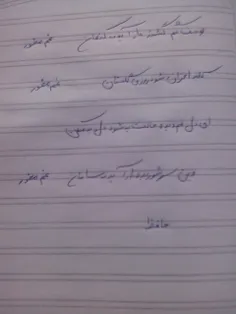 یوسف گم گشته باز آید به کنعان غم مخور
کلبه احزان شود روزی گلستان غم مخور
ای دل غمدیده حالت به شود دل بد مکن
وین سر شوریده باز آید به سامان غم مخور
حافظ